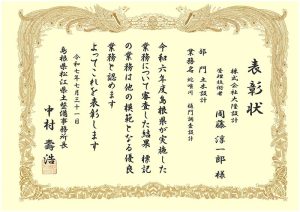 表彰状
株式会社大隆設計
管理技術者
周藤淳一郎 様
部門 土木設計
業務名 蛇喰川 樋門調査設計
令和六年度島根県が実施した
業務について審査した結果 標記
の業務は他の模範となる優良
業務と認めます
よってこれを表彰します
令和七年七月三十一日
島根県松江県土整備事務所長
中村 壽浩